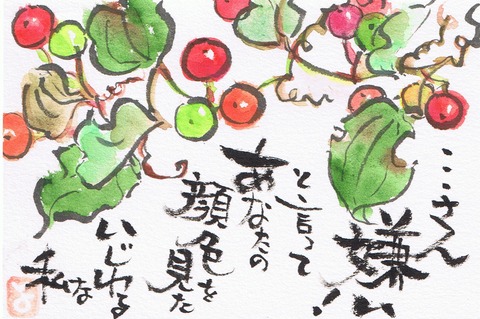 …さん
嫌い!
と言って
あなたの
顔色を見た
いじわるな
私